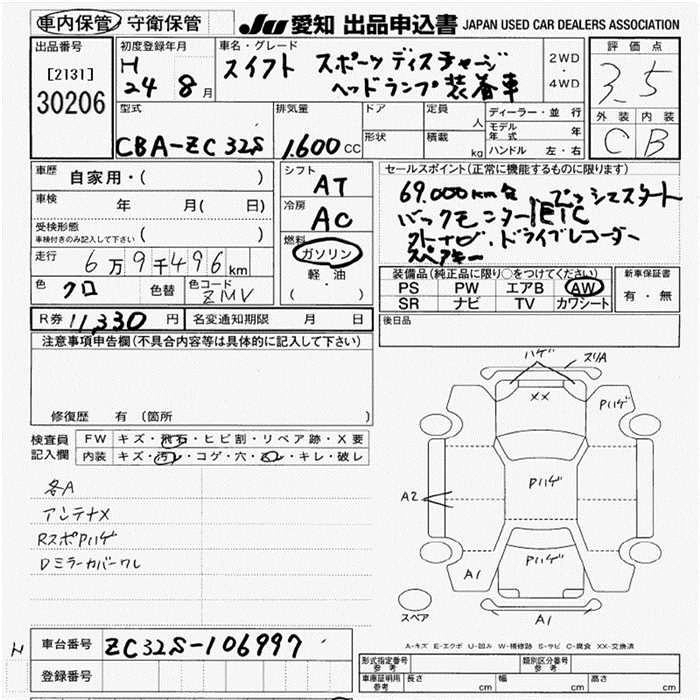 車内保管 / 守衛保管
JU 愛知 出品申込書 JAPAN USED CAR DEALERS ASSOCIATION
出品番号
[2131]
30206
初度登録年月
H
24 8月
車名・グレード
スイフト スポーツ ディスチャージ
ヘッドランプ装着車
2WD
・
4WD
評価点
3.5
外装 内装
C B
型式
CBA-ZC32S
排気量
1.600cc
ドア
形状
定員
人
積載
kg
ディーラー・並行
モデル年式 年
ハンドル 左・右
車歴
自家用・( )
車検
年 月( 日)
受検形態
車検付きのみ記入して下さい( )
走行
6万9千496km
色
クロ
色替
色コード
ZMV
シフト
AT
冷房
AC
燃料
ガソリン
軽・油
( ・ )
セールスポイント(正常に機能するものに限ります)
69.000km台 プッシュスタート
バックモニター ETC
外ナビ.ドライブレコーダー
スペアキー
装備品(純正品に限り○をつけてください)
PS PW エアB AW
SR ナビ TV カワシート
新車保証書
有・無
R券 11,330円
名変通知期限 月 日
後日品
注意事項申告欄(不具合内容等は具体的に記入して下さい)
修復歴 有 (箇所 )
検査員
記入欄
FW キズ・飛石・ヒビ割・リペア跡・X要
内装 キズ・汚レ・コゲ・穴・・キレ・破レ
各A
アンテナX
RスポPハゲ
Dミラーカバーワレ
ハゲ
スリA
XX
Pハゲ
Pハゲ
A2
Pハゲ
A1
A1
スペア
A-キズ E-エクボ U-凹み W-補修跡 S-サビ C-腐食 XX-交換済
H
車台番号
ZC32S-106997
登録番号
形式指定番号
参考
類別区分番号
参考
車庫証明用
参考
長さ cm
幅 cm
高さ cm